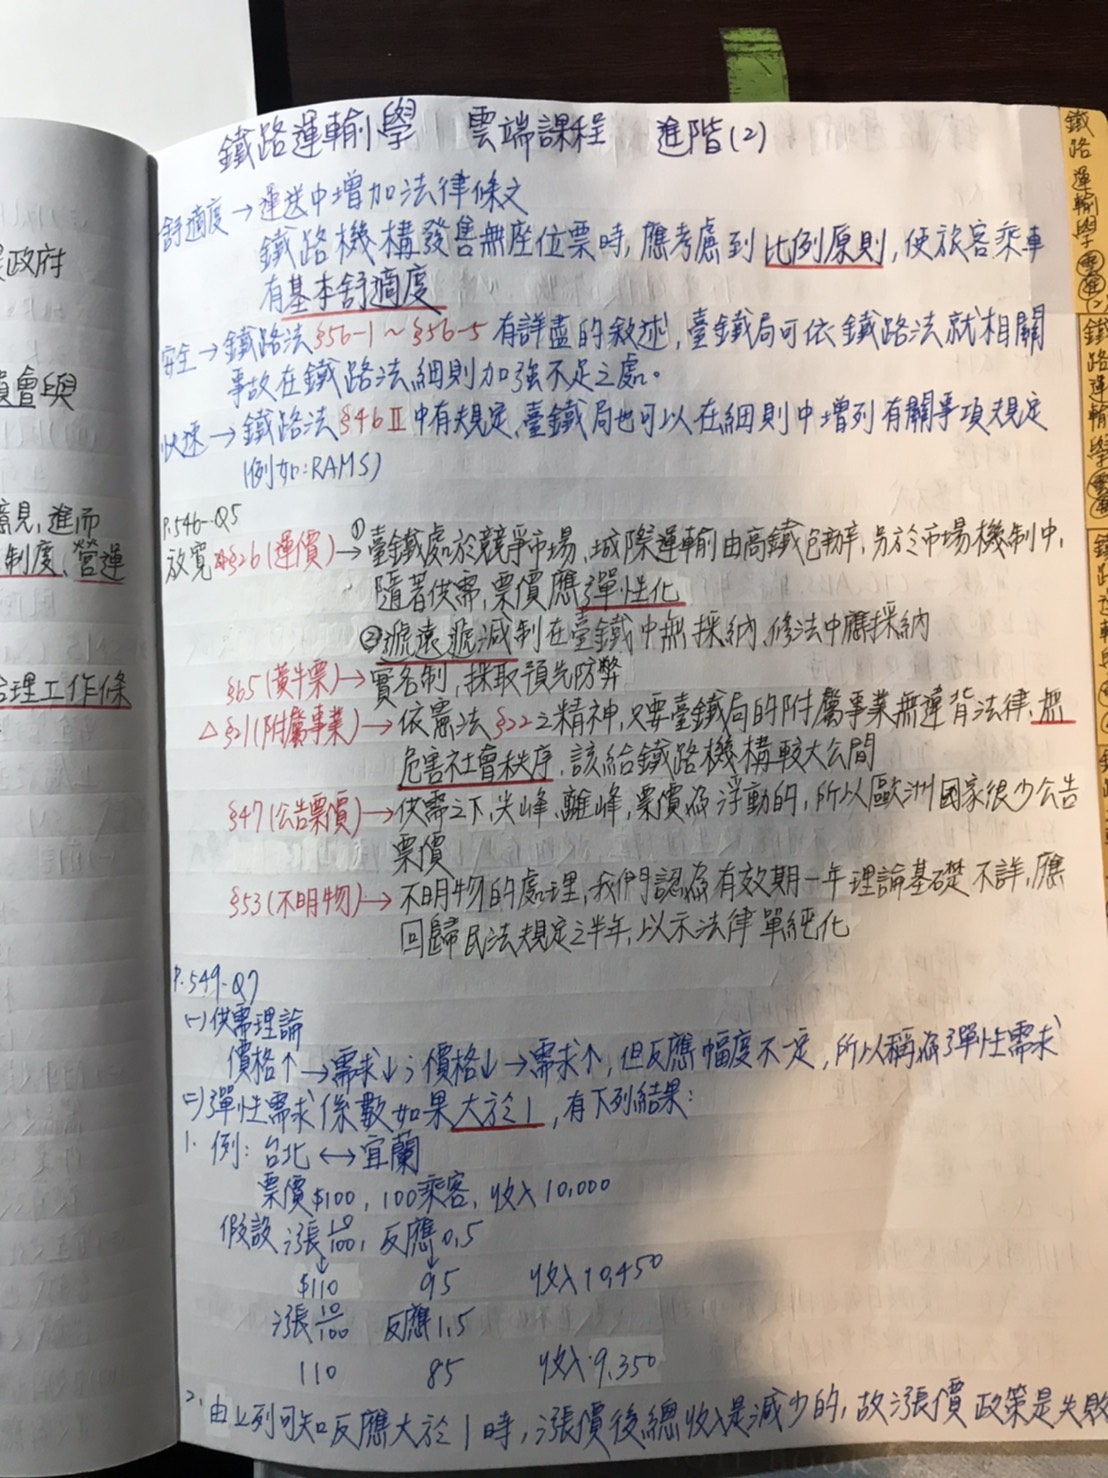 鐵路運輸學 雲端課程 進階(2)
舒適度→運送中增加法律條文
鐵路機構發售無座位票時,應考慮到比例原則,使旅客乘車
有基本舒適度
安全→鐵路法§56-1~§56-5有詳盡的敘述,臺鐵局可依鐵路法就相關
事故在鐵路法細則加強不足之處。
快速→鐵路法§46Ⅱ中有規定,臺鐵局也可以在細則中增列有關事項規定
(例如:RAMS)
P.546-Q5
放寬§26(運價)→①臺鐵處於競爭市場,城際運輸由高鐵包辦,另於市場機制中,
隨著供需,票價應彈性化
②遞遠遞減制在臺鐵中無採納,修法中應採納
§65(黃牛票)→實名制,採取預先防弊
△§21(附屬事業)→依憲法§22之精神,只要臺鐵局的附屬事業無違背法律,無
危害社會秩序,該給鐵路機構較大公間
§47(公告票價)→供需之下,尖峰、離峰,票價為浮動的,所以歐洲國家很少公告
票價
§53(不明物)→不明物的處理,我們認為有效期一年理論基礎不詳,應
回歸民法規定之半年,以示法律單純化
P.549-Q7
(一)供需理論
價格↑→需求↓;價格↓→需求↑,但反應幅度不一定,所以稱為彈性需求
(二)彈性需求係數如果大於1,有下列結果:
1. 例:台北↔宜蘭
票價$100,100乘客,收入10,000
假設漲10/100,反應0.5
↓ ↓
$110 95 收入10,450
漲10/100 反應1.5
110 85 收入9,350
2.由上列可知反應大於1時,漲價後總收入是減少的,故漲價政策是失敗
鐵路運輸學
鐵路運輸學
政府
會與
意見,進而
制度、營運
合理工作條